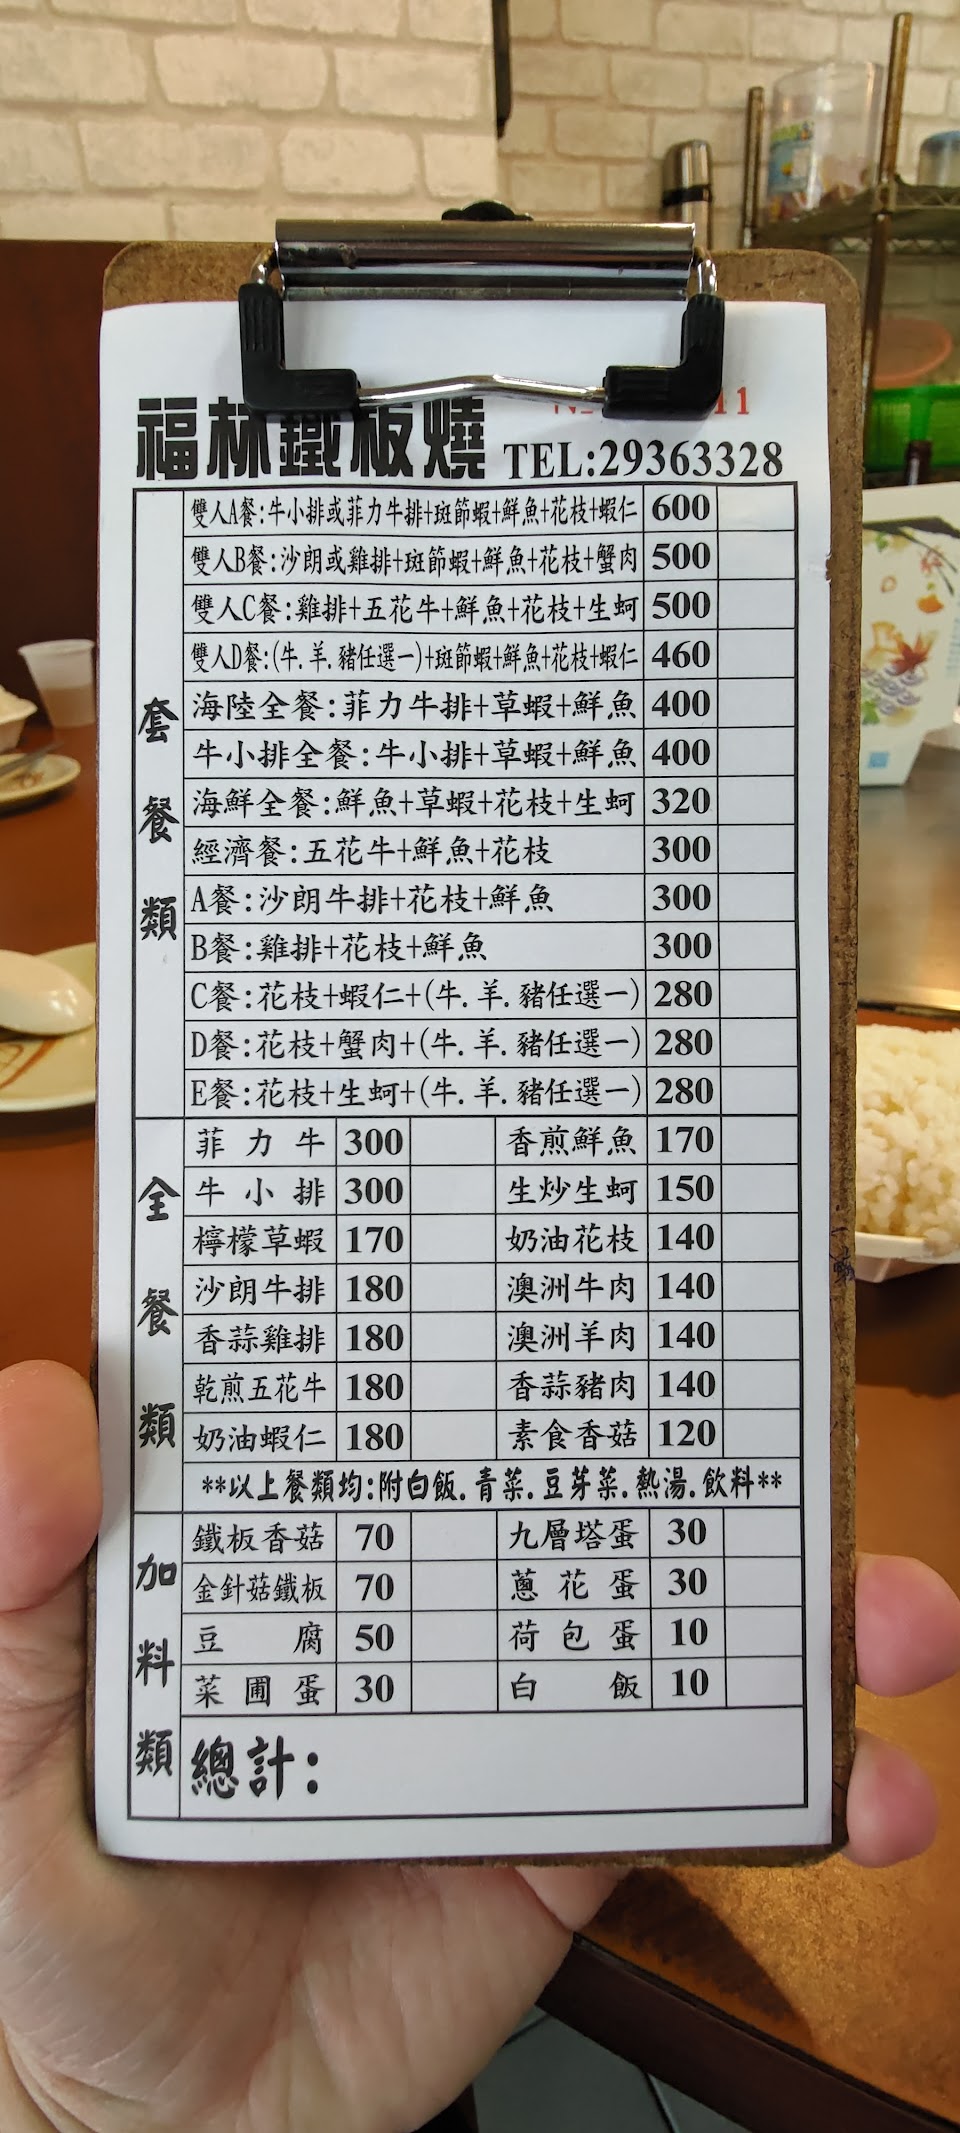 福林鐵板燒 TEL:29363328
套餐類
雙人A餐:牛小排或菲力牛排+斑節蝦+鮮魚+花枝+蝦仁 600
雙人B餐:沙朗或雞排+斑節蝦+鮮魚+花枝+蟹肉 500
雙人C餐:雞排+五花牛+鮮魚+花枝+生蚵 500
雙人D餐:(牛.羊.豬任選一)+斑節蝦+鮮魚+花枝+蝦仁 460
海陸全餐:菲力牛排+草蝦+鮮魚 400
牛小排全餐:牛小排+草蝦+鮮魚 400
海鮮全餐:鮮魚+草蝦+花枝+生蚵 320
經濟餐:五花牛+鮮魚+花枝 300
A餐:沙朗牛排+花枝+鮮魚 300
B餐:雞排+花枝+鮮魚 300
C餐:花枝+蝦仁+(牛.羊.豬任選一) 280
D餐:花枝+蟹肉+(牛.羊.豬任選一) 280
E餐:花枝+生蚵+(牛.羊.豬任選一) 280
全餐類
菲力牛 300 香煎鮮魚 170
牛小排 300 生炒生蚵 150
檸檬草蝦 170 奶油花枝 140
沙朗牛排 180 澳洲牛肉 140
香蒜雞排 180 澳洲羊肉 140
乾煎五花牛 180 香蒜豬肉 140
奶油蝦仁 180 素食香菇 120
**以上餐類均:附白飯.青菜.豆芽菜.熱湯.飲料**
加料類
鐵板香菇 70 九層塔蛋 30
金針菇鐵板 70 蔥花蛋 30
豆腐 50 荷包蛋 10
菜圃蛋 30 白飯 10
總計: